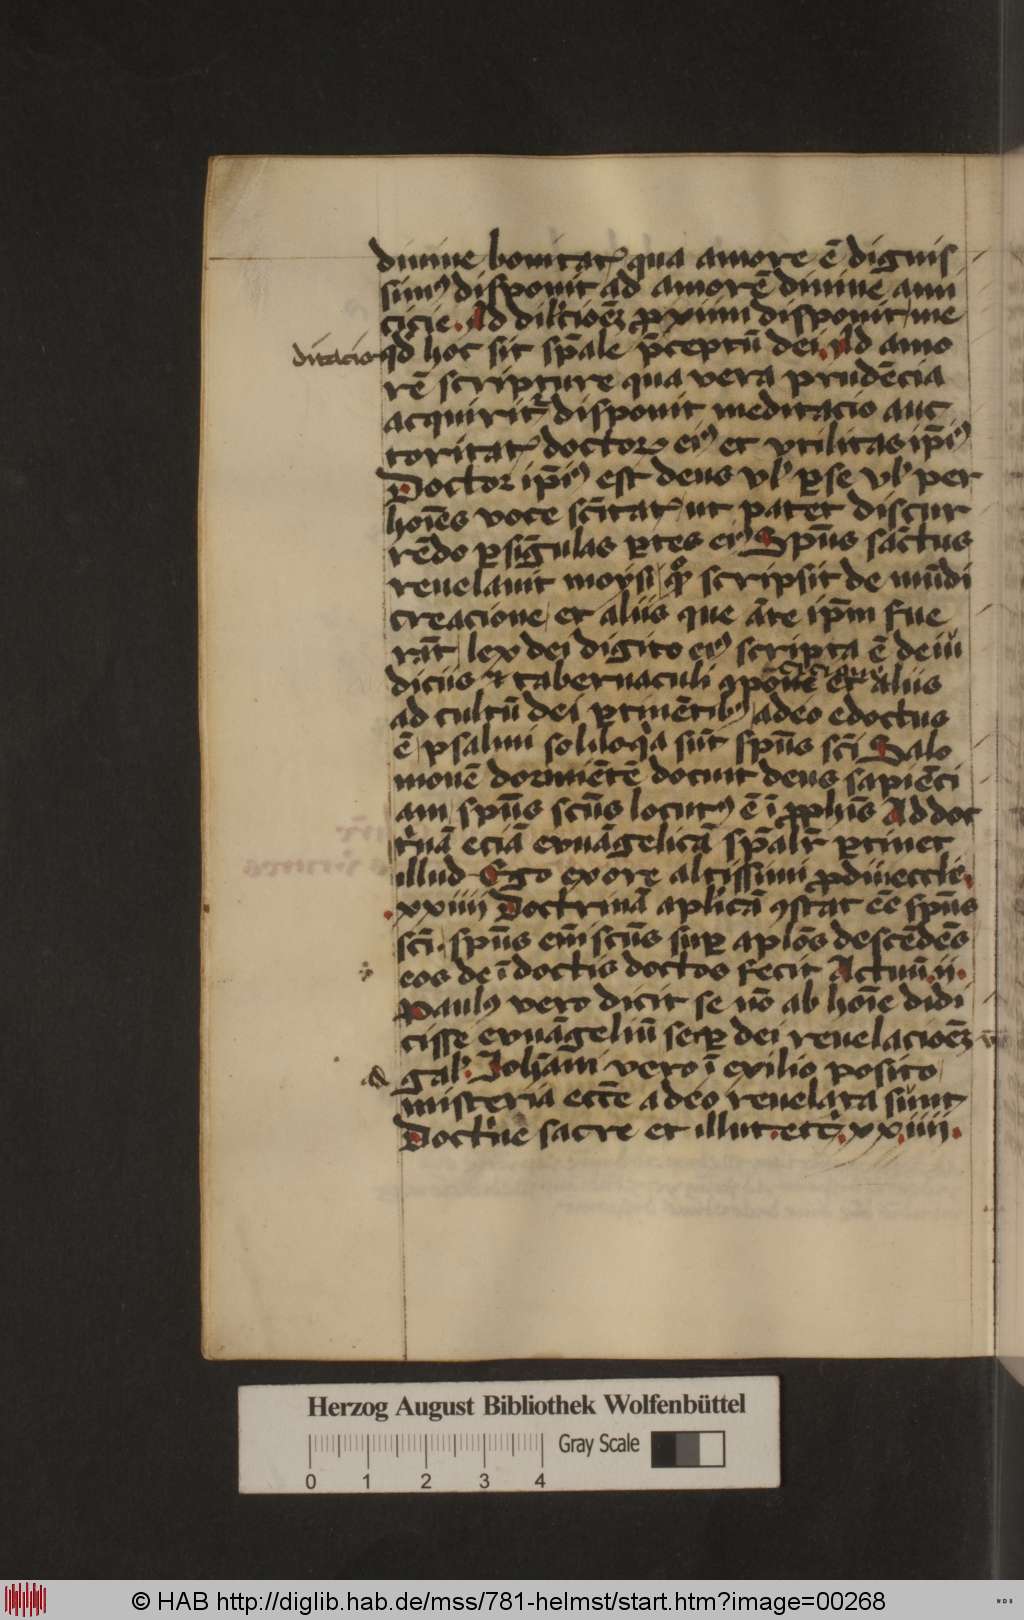 diuine bonitatꝭ qua amore ē dignis
simꝰ disponit ad amorē diuine ami
cicie. Ad dilc̄ioēꝫ ꝓximi disponit me
ditacio qđ hoc sit sp̄ale p̄ceptū dei. Ad amo
rē scripture qua vera prudēcia
acquirit᷑ disponit meditacio auc
toritatꝭ doctorꝭ eiꝰ et vtilitas ip̄iꝰ
Doctor ip̄iꝰ est deus vl' ꝑ se vl' per
hoīēs voce sc̄itatꝭ ut patet discur
rēdo ꝑ sīgulas ꝑtes eiꝰ Sp̄us sāctus
reuelauit moysi scripsit de mūdi
creacione et aliis que āte ip̄m fue
rāt lex dei digito eiꝰ scripta ē de iu
diciis et tabernaculi ꝯpōne et aliis
ad cultū dei ꝑtinētibꝰ a deo edoctus
ē psalmi soliloq̄a sūt sp̄us sc̄i Salo
monē dormiētē docuit deus sapiēci
am sp̄us sc̄us locutꝰ ē ī ꝓphīs Ad doc
t'nā eciā evuāgelicā sp̄alr̄ ꝑtinet
illud Ego ex ore altissimi ꝓdii eccle.
xxiiii Doctrinā aplicā ꝯstat eē sp̄us
sc̄i. sp̄us em̄ sc̄us suꝑ aplōs descēdēs
eos de īdoctis doctos fecit Actuū ii.
Paulꝰ vero dicit se nō ab hoīe didi
cisse evuāgeliū set ꝑ dei reuelacioēꝫ
gal'. Iohāni vero ī exilio posito
misteria ecc̄e a deo reuelata sunt
Doct'ne sacre et illut. ecc̄. xxiiii.
Herzog August Bibliothek Wolfenbüttel
Gray Scale
0 1 2 3 4
© HAB http://diglib.hab.de/mss/781-helmst/start.htm?image=00268